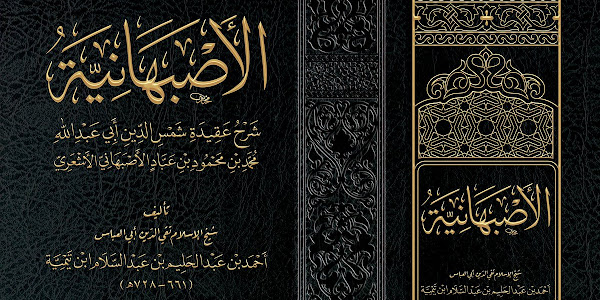 الأَصْبَهَانِيَّةُ
شَرْحُ عَقِيدَةِ شَمْسِ الدِّينِ أَبِي عَبْدِ اللهِ
مُحَمَّدِ بْنِ مَحْمُودِ بْنِ عَبَّادٍ الأَصْبَهَانِيِّ الأَشْعَرِيِّ
تأليف
شيخ الإسلام تقي الدين أبي العباس
أَحْمَدَ بْنِ عَبْدِ الْحَلِيمِ بْنِ عَبْدِ السَّلَامِ ابْنِ تَيْمِيَّةَ
(٦٦١-٧٢٨هـ)
الأَصْبَهَانِيَّةُ
شيخ الإسلام تقي الدين أبي العباس
أَحْمَدَ بْنِ عَبْدِ الْحَلِيمِ بْنِ عَبْدِ السَّلَامِ ابْنِ تَيْمِيَّةَ